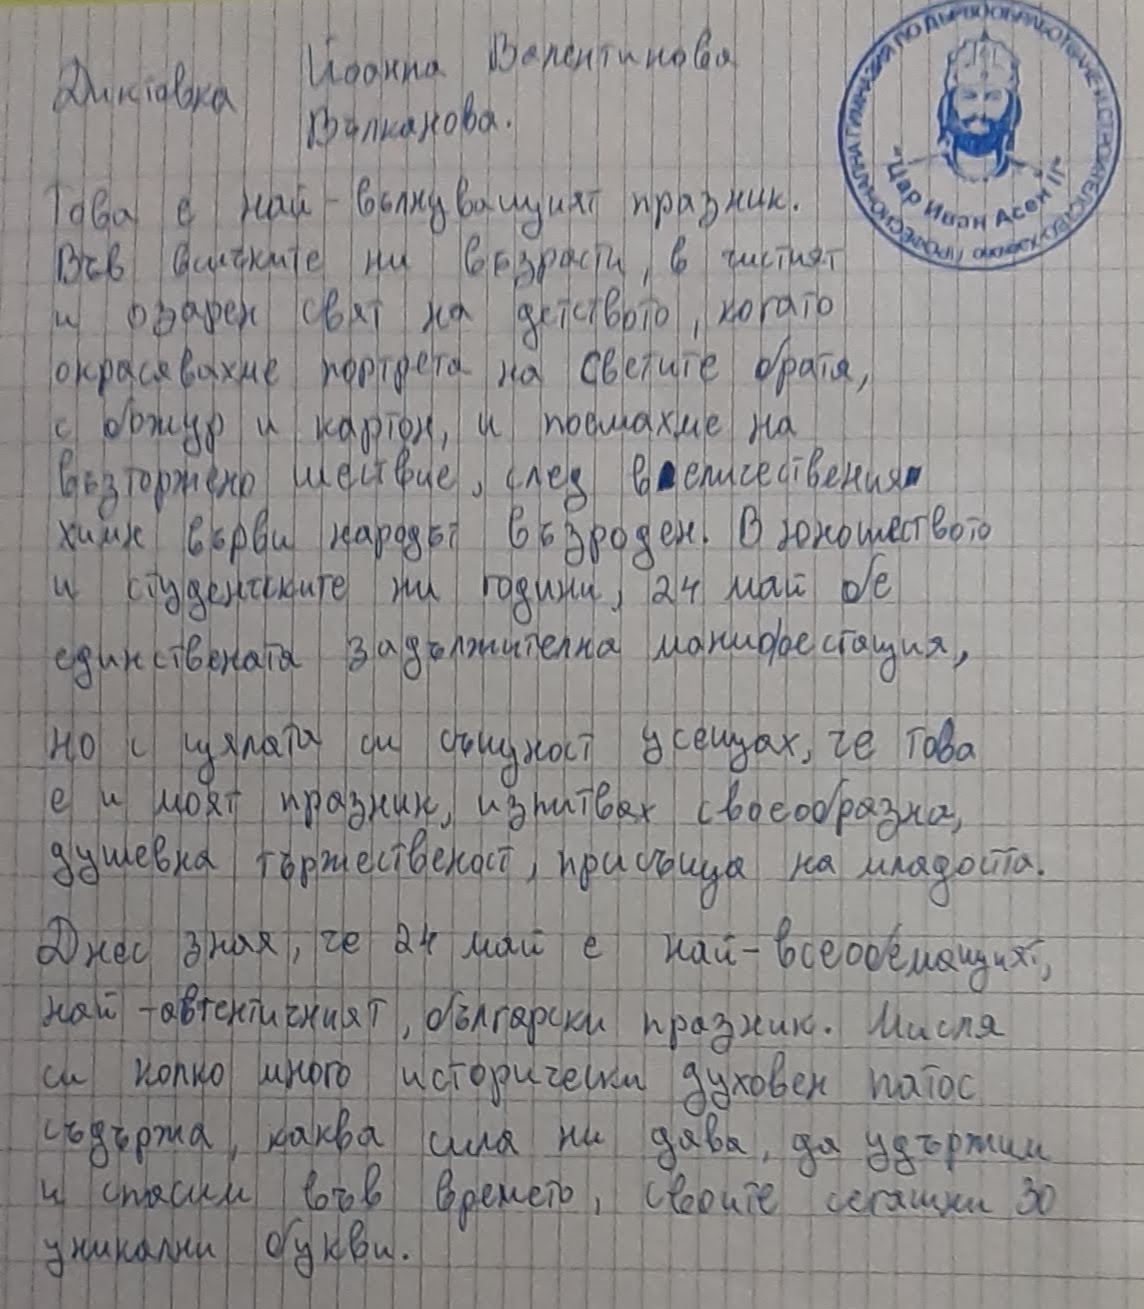 Диктовка Йоанна Валентинова
Вълканова.
ПРОФЕСИОНАЛНА ГИМНАЗИЯ ПО ДЪРВООБРАБОТВАНЕ И СТРОИТЕЛСТВО
"Цар Иван Асен II"
Това е най-вълнуващият празник.
Във всичките ни възрасти, в чистият
и озарен свят на детството, когато
окрасявахме портрета на светите братя,
с божур и картон, и поемахме на
възторжено шествие, след величествения
химн върви народът възроден. В юношеството
и студентските ни години, 24 май бе
единствената задължителна манифестация,
но с цялата си същуност усещах, че това
е и моят празник, изпитвах своеобразна,
душевна тържественост, присъща на младостта.
Днес зная, че 24 май е най-всеобемащият,
най-автентичният, български празник. Мисля
си колко много исторически духовен патос
съдържа, каква сила ни дава, да удържим
и спасим във времето, своите сегашни 30
уникални букви.